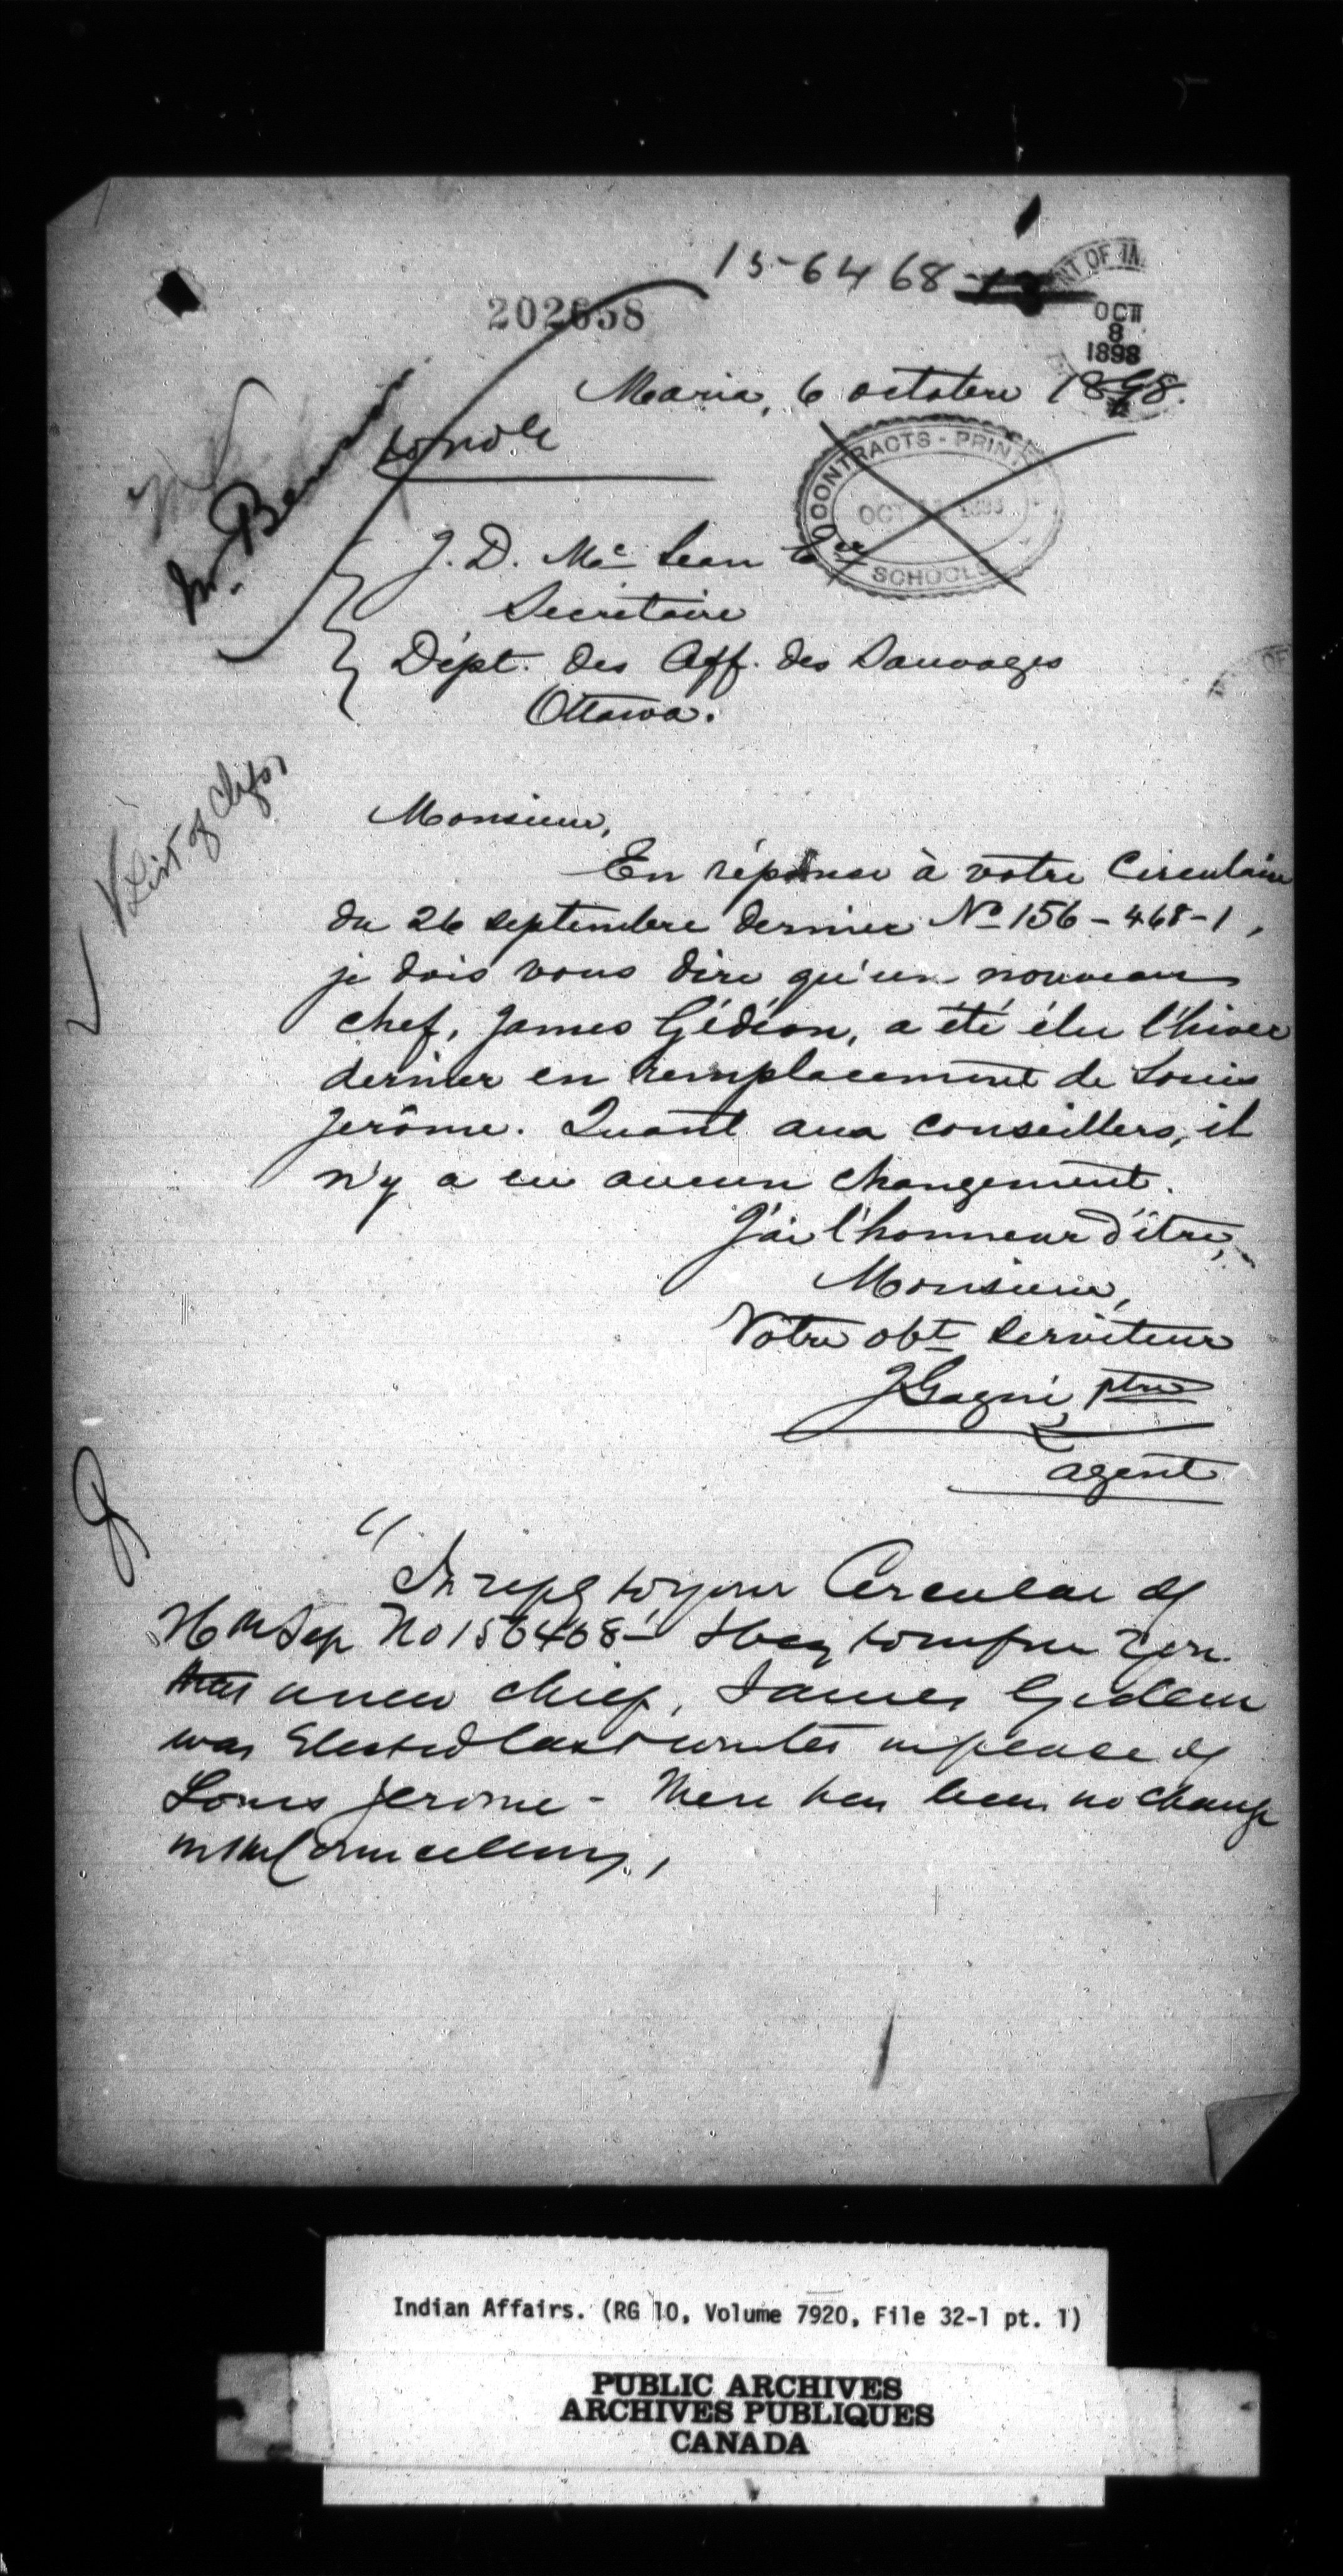 15-6468-13
202658
NT OF IN
OCT
8
1898
Maria, 6 octobre 1898.
Mr. Benson
CONTRACTS - PRINT
OCT
SCHOOLS
J. D. Mc Lean Ecr
Secrétaire
Dépt. des Aff. des Sauvages
Ottawa.
OF
List of Chfs
Monsieur,
En réponse à votre Circulaire
du 26 septembre dernier No 156-468-1,
je dois vous dire qu'un nouveau
chef, James Gédéon, a été élu l'hiver
dernier en remplacement de Louis
Jerôme. Quant aux conseillers, il
n'y a eu aucun changement.
J'ai l'honneur d'être,
Monsieur,
Votre obt serviteur
J Gagné, ptre
agent
"In reply to your Circular of
26th Sep No 156468-1 I beg to inform you
that a new chief, James Gedeon
was Elected last winter in place of
Louis Jerome - There has been no change
in the Councillors,
Indian Affairs. (RG 10, Volume 7920, File 32-1 pt. 1)
PUBLIC ARCHIVES
ARCHIVES PUBLIQUES
CANADA